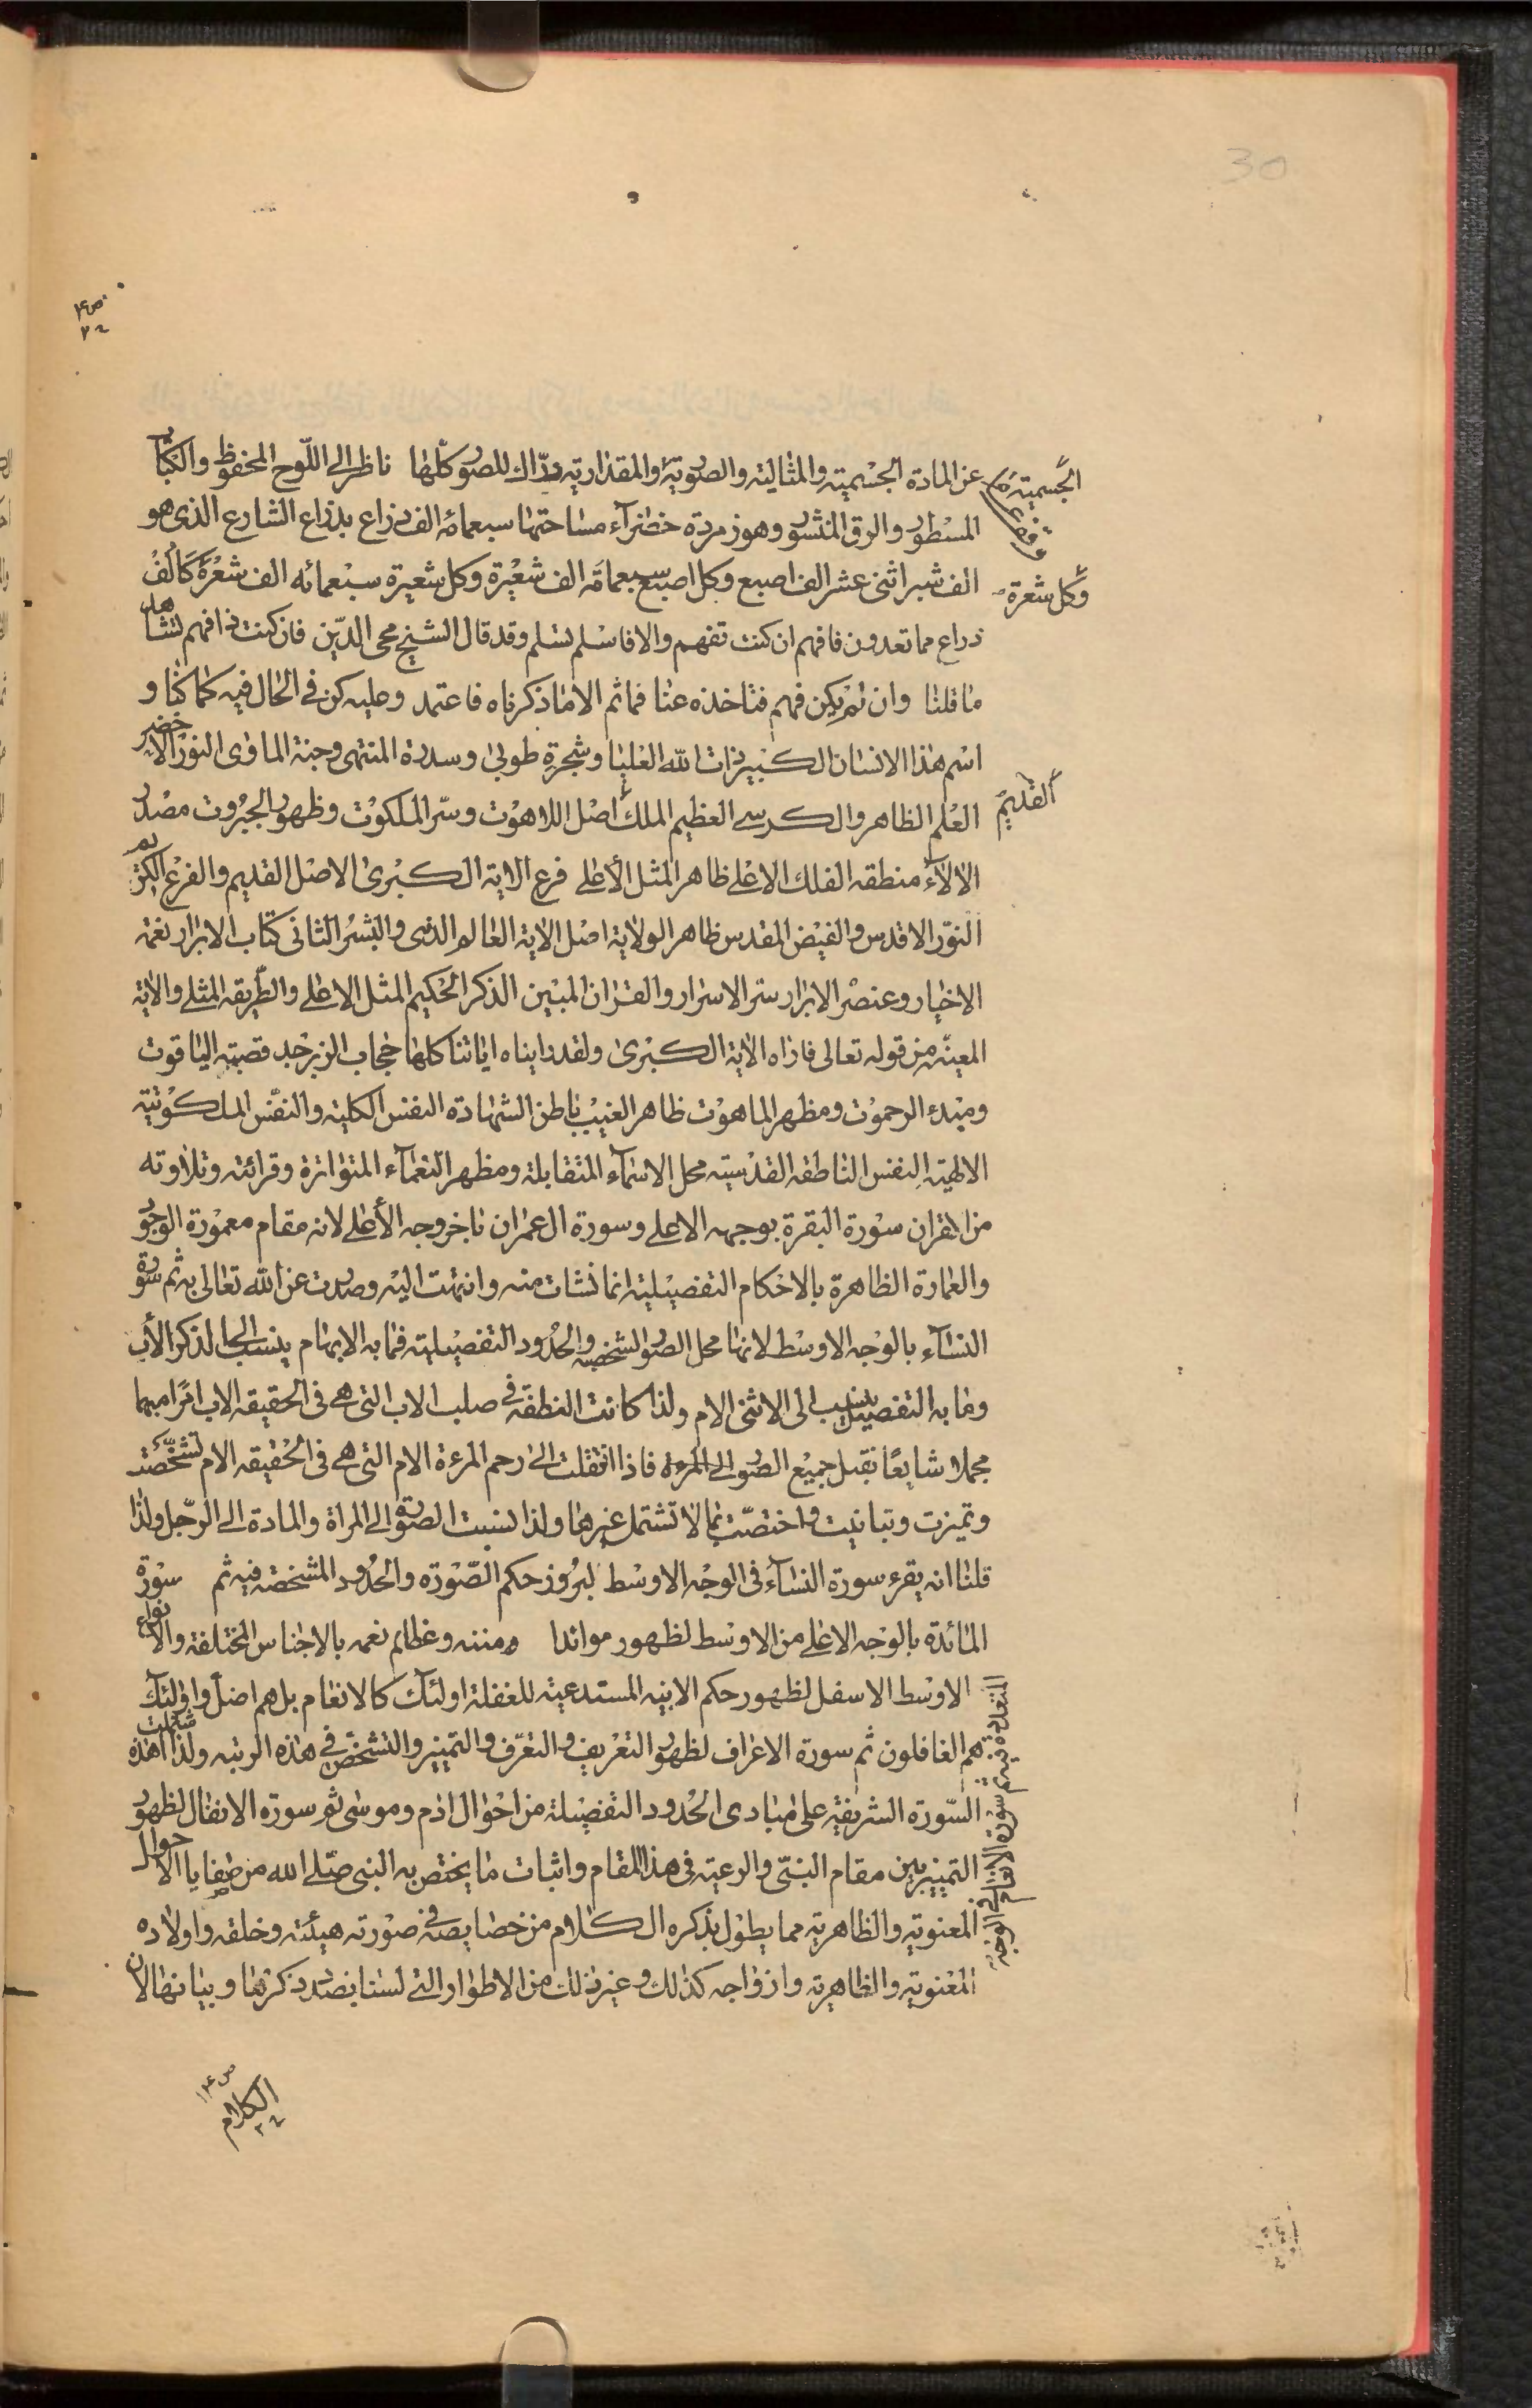 30
عن المادة الجسمية والمثالية والصورية والمقدارية درّاك للصور كلها ناظر الى اللّوح المحفوظ والكتاب
الجسمية
المسطور والرق المنشور وهو زمردة خضرآء مساحتها سبعمائة الف ذراع بذراع الشارع الذى هو
الف شبر اثنى عشر الف اصبع وكل اصبع سبعمائة الف شعيرة وكل شعيرة سبعمائه الف شعرة كالف
وكل شعرة
ذراع مما تعدون فافهم ان كنت تفهم والا فاسلم تسلم وقد قال الشيخ محى الدّين فان كنت ذا فهم تشاهد
ما قلنا وان لم يكن فهم فتاخذه عنا فما ثم الا ما ذكرناه فاعتمد وعليه كن فى الحال فيه كما كنا و
اسم هذا الانسان الكبير ذات الله العليا وشجرة طوبى وسدرة المنتهى وجنة الماوى النور الاخضر
العلم الظاهر والكرسى العظيم الملك اصل اللاهوت وسرّ الملكوت وظهور الجبروت مصدر
القديم
الالآء منطقه الفلك الاعلى ظاهر المثل الأعلى فرع الاية الكبرى الاصل القديم والفرع الكريم
النور الاقدس والفيض المقدس ظاهر الولاية اصل الاية العالم الذى والبشر الثانى كتاب الابرار نغمة
الاخيار وعنصر الابرار سرّ الاسرار والقران المبين الذكر الحكيم المثل الاعلى والطّريقه المثلى والاية
المعينّه من قوله تعالى فاراه الاية الكبرى ولقد اريناه اياتنا كلها حجاب الزبرجد قصبة الياقوت
ومبدء الرحموت ومظهر الماهوت ظاهر الغيب باطن الشهادة النفس الكلية والنفس الملكوتية
الالهية النفس الناطقه القدسية محل الاسمآء المتقابلة ومظهر النعمآء المتواترة وقرائته وتلاوته
من القران سورة البقرة بوجهه الاعلى وسورة ال عمران باخر وجه الأعلى لانه مقام معمورة الوجود
والعمارة الظاهرة بالاحكام التفصيلية انما نشات منه وانتهت اليه وصدرت عن الله تعالى به ثم سورة
النسآء بالوجه الاوسط لانها محل الصور الشخصية والحدود التفصيلية فما به الابهام ينسب الى الذكر الأب
وما به التفصيل ينسب الى الانثى الام ولذا كانت النطفة فى صلب الاب التى هى فى الحقيقه الاب امرا مبهما
مجملا شايعا تقبل جميع الصور الى المرءة فاذا انتقلت الى رحم المرءة الام التى هى فى الحقيقه الام تشخّصت
وتميزت وتباينت واختصّت بما لا تشتمل غيرها ولذا نسبت الصورة الى المراة والمادة الى الرّجل ولذا
قلنا انه يقرء سورة النسآء فى الوجه الاوسط لبروز حكم الصّورة والحدود المشخصة فيه ثم سورة
المائدة بالوجه الاعلى من الاوسط لظهور موائد مننه وعظائم نعمه بالاجناس المختلفة والانواع
المتعددة فيه ثم سورة الانعام فى الوجه
الاوسط الاسفل لظهور حكم الانيه المستدعية للغفلة اولئك كالانعام بل هم اضل واولئك
هم الغافلون ثم سورة الاعراف لظهور التعريف والتعرّف والتمييز والتشخص فى هذه الرتبه ولذا اشتملت هذه
السّورة الشريفة على مبادى الحدود التفصيلة من احوال ادم وموسى ثم سورة الانفال لظهور
التمييز بين مقام النبّى والرعية فى هذا المقام واثبات ما يختص به النبى صلى الله من صفايا الاحوال
المعنوية والظاهرية مما يطول بذكره الكلام من خصايصه فى صورته هيئته وخلقه واولاده
المعنوية والظاهرية وازواجه كذلك وغير ذلك من الاطوار التى لسنا بصدد ذكرها وبيانها لان
الكلام